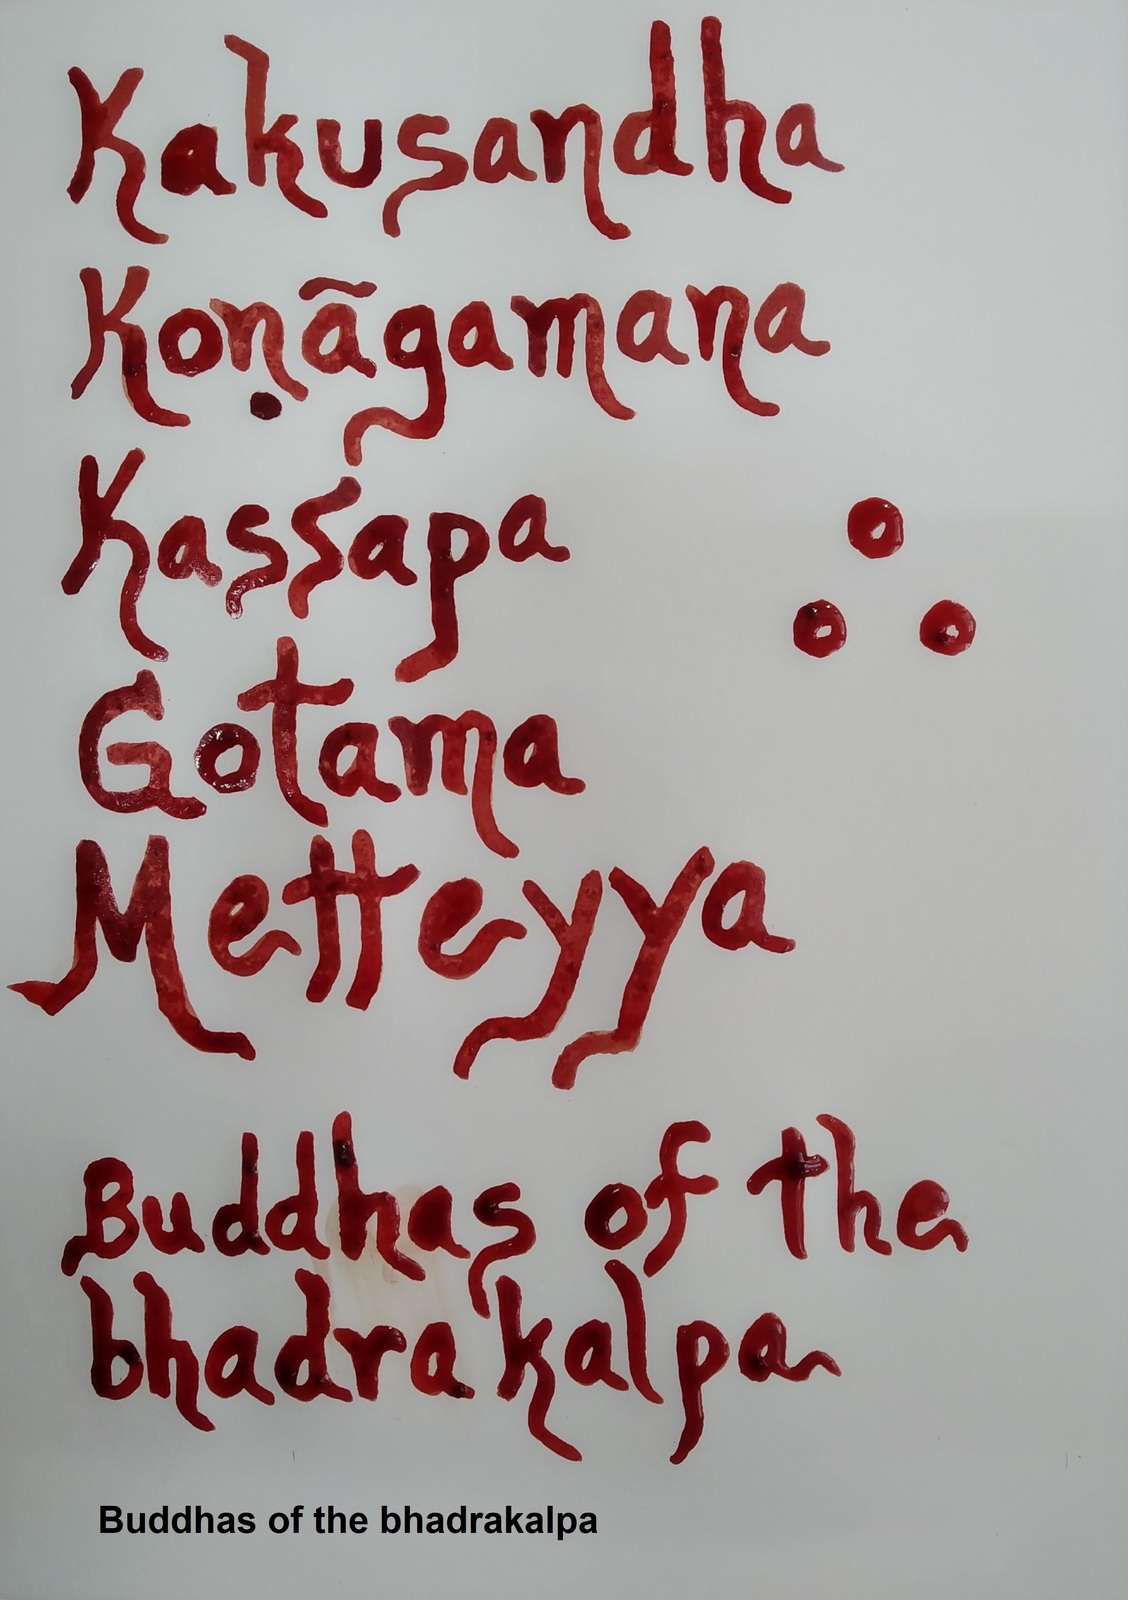 Kakusandha
Koṇāgamana
Kassapa
Gotama
Metteyya
Buddhas of the
bhadrakalpa
Buddhas of the bhadrakalpa